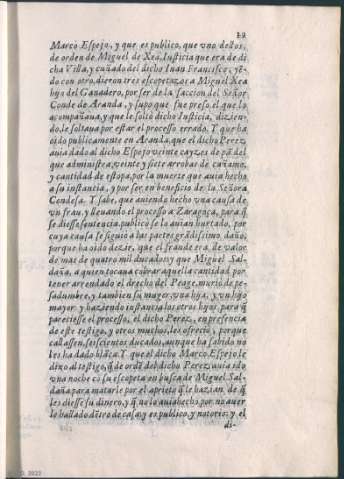 12
Marco Espejo, y que es publico, que vno destos,
de orden de Miguel de Xea, Iusticia que era de di
cha Villa, y cuñado del dicho Iuan Francisco, yē
do con otro, dieron tres escopetazos a Miguel Xea
hijo del Ganadero, por ser de la faccion del Señor
Conde de Aranda, y supo que fue preso el que lo
acompañaua, y que le soltò dicho Iusticia, dizien-
do, le soltaua por estar el processo errado. Y que ha
oido publicamente en Aranda, que el dicho Perez,
auia dado al dicho Espejo veinte cayzes de pā del
que administra, veinte y siete arrobas de cañamo,
y cantidad de estopa, por la muerte que auia hecho
a su instancia, y por ser en beneficio de la Señora
Condesa. Y sabe, que auiendo hecho vna causa de
vn frau, y lleuando el processo a Zaragoça, para q̃
se diesse sentencia, publicò se lo auian hurtado, por
cuya causa se siguiò a las partes grādissimo daño,
porque ha oido dezir, que el fraude era de valor
de mas de quatro mil ducados, y que Miguel Sal-
daña, a quien tocaua cobrar aquella cantidad, por
tener arrendado el drecho del Peage, muriò de pe-
sadumbre, y tambien su muger, vna hija, y vn hijo
mayor, y haziendo instancia los otros hijos, para q̃
pareciesse el processo, el dicho Perez, en presencia
de este testigo, y otros muchos, les ofreciò, porque
callassen, seiscientos ducados, aunque ha sabido no
les ha dado blāca. Y que el dicho Marco Espejo, le
dixo al testigo, q̃ de ordē del dicho Perez, auia ido
vna noche cō su escopeta en busca de Miguel Sal-
daña para matarle por el aprieto q̃ le hazian de q̃
les diesse su dinero, y q̃ no lo auia hecho por no auer
lo hallado dētro de casa, y es publico, y notorio, y el
di-
2022